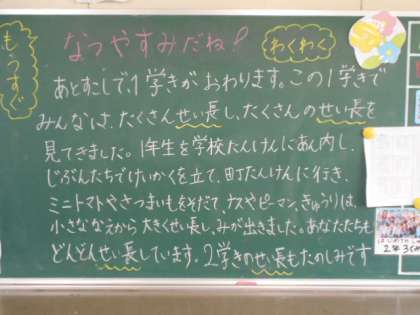 もうすぐ
なつやすみだね！
わくわく
あとすこしで、1学きがおわります。この1学きで
みんなは、たくさんせい長し、たくさんのせい長を
見てきました。1年生を学校たんけんにあん内し、
じぶんたちでけいかくを立て、町たんけんに行き、
ミニトマトやさつまいもをそだて、ナスやピーマン、きゅうりは、
小さななえから大きくせい長し、みが出きました。あなたたちも
どんどんせい長しています。2学きのせい長もたのしみです
2年3くみ